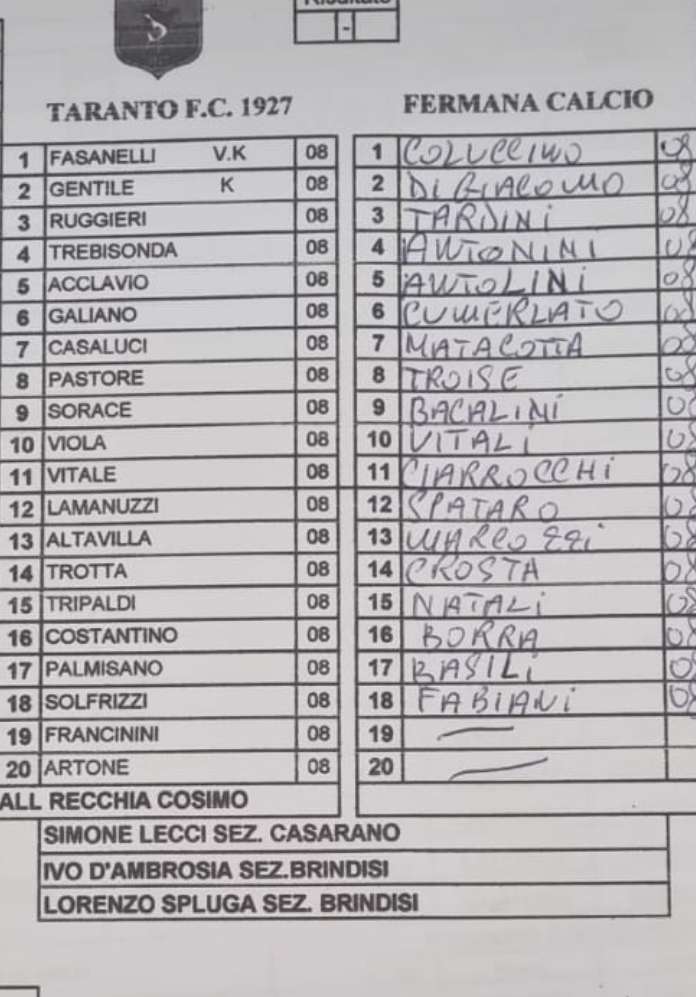 Risultato
-
TARANTO F.C. 1927 FERMANA CALCIO
1 FASANELLI V.K 08 1 COLUCCINO 08
2 GENTILE K 08 2 DI GIACOMO 08
3 RUGGIERI 08 3 TARDINI 08
4 TREBISONDA 08 4 ANTONINI 08
5 ACCLAVIO 08 5 ANTOLINI 08
6 GALIANO 08 6 CUMERLATO 08
7 CASALUCI 08 7 MATACOTTA 08
8 PASTORE 08 8 TROISE 08
9 SORACE 08 9 BACALINI 08
10 VIOLA 08 10 VITALI 08
11 VITALE 08 11 CIARROCCHI 08
12 LAMANUZZI 08 12 SPATARO 08
13 ALTAVILLA 08 13 MARCOZZI 08
14 TROTTA 08 14 CROSTA 08
15 TRIPALDI 08 15 NATALI 08
16 COSTANTINO 08 16 BORRA 08
17 PALMISANO 08 17 BASILI 08
18 SOLFRIZZI 08 18 FABIANI 08
19 FRANCININI 08 19 —
20 ARTONE 08 20 —
ALL RECCHIA COSIMO
SIMONE LECCI SEZ. CASARANO
IVO D'AMBROSIA SEZ.BRINDISI
LORENZO SPLUGA SEZ. BRINDISI